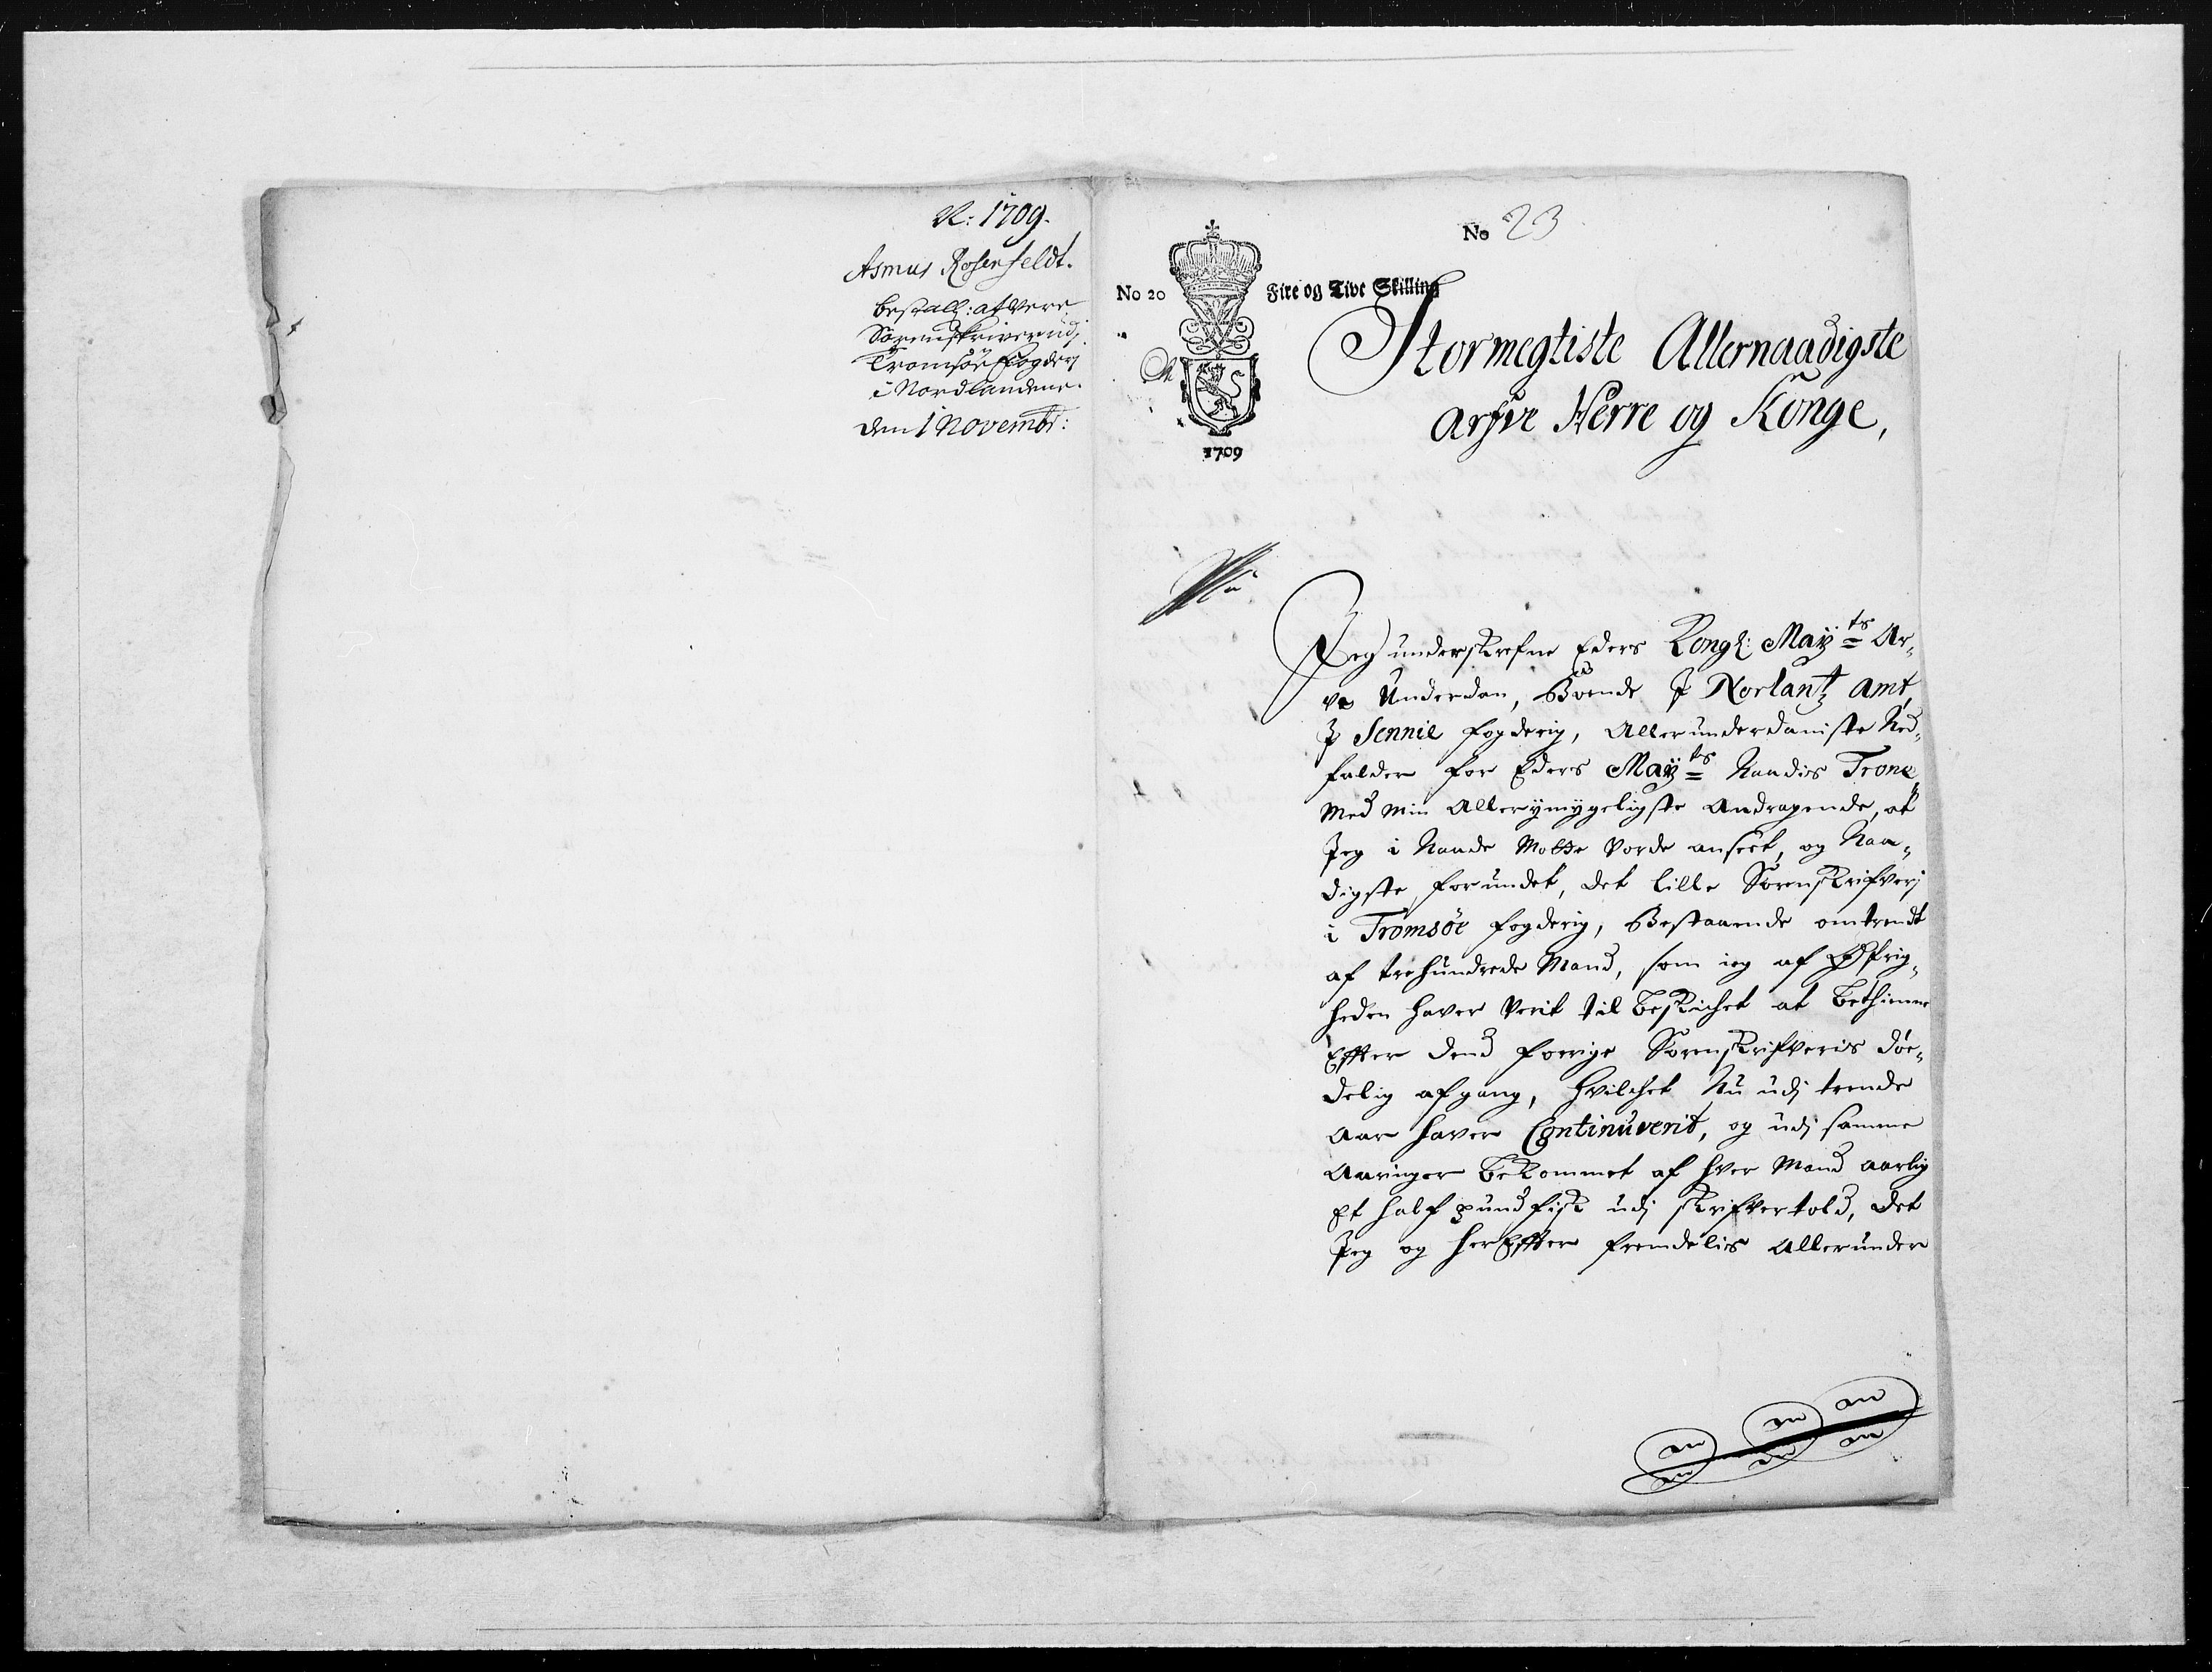 N: 1709.
Asmus Rosenfeldt.
Bestall: at Være
Sorenskriver udj
Tromsöe Fogderj
i Nordlandene.
den 1 Novembr:
No 23
No 20 Fire og Tive Skilling
1709
Stormegtiste Allernaadigste
arfve Herre og Konge,
Jeg underskrefne Eders Kongl: Mayts Ar-
ve Underdan, Boende J Norlantz Amt,
J Sennie fogderij, Allerunderdaniste Ned-
falder for Eders Mayts Naadis Trone,
Med min Allerÿmygeligste Andragende, at
Jeg i Naade Motte Vorde anseet, og Naa-
digste forundet, det lille Sorenskrifverj
i Tromsöe fogderij, Bestaaende omtrendt
af trehundrede Mand, som ieg af Øfrig-
heden haver Verit til beskichet at bethienne
Effter dend forrige Sorenskrifveris döe-
delig afgang, hvilchet Nu udj trende
Aar haver Continuverit, og udj samme
Aaringer bekommet af hver Mand aarlig
Et half pund fisk udj skrifvertold, det
Jeg og herEffter fremdelis Allerunder